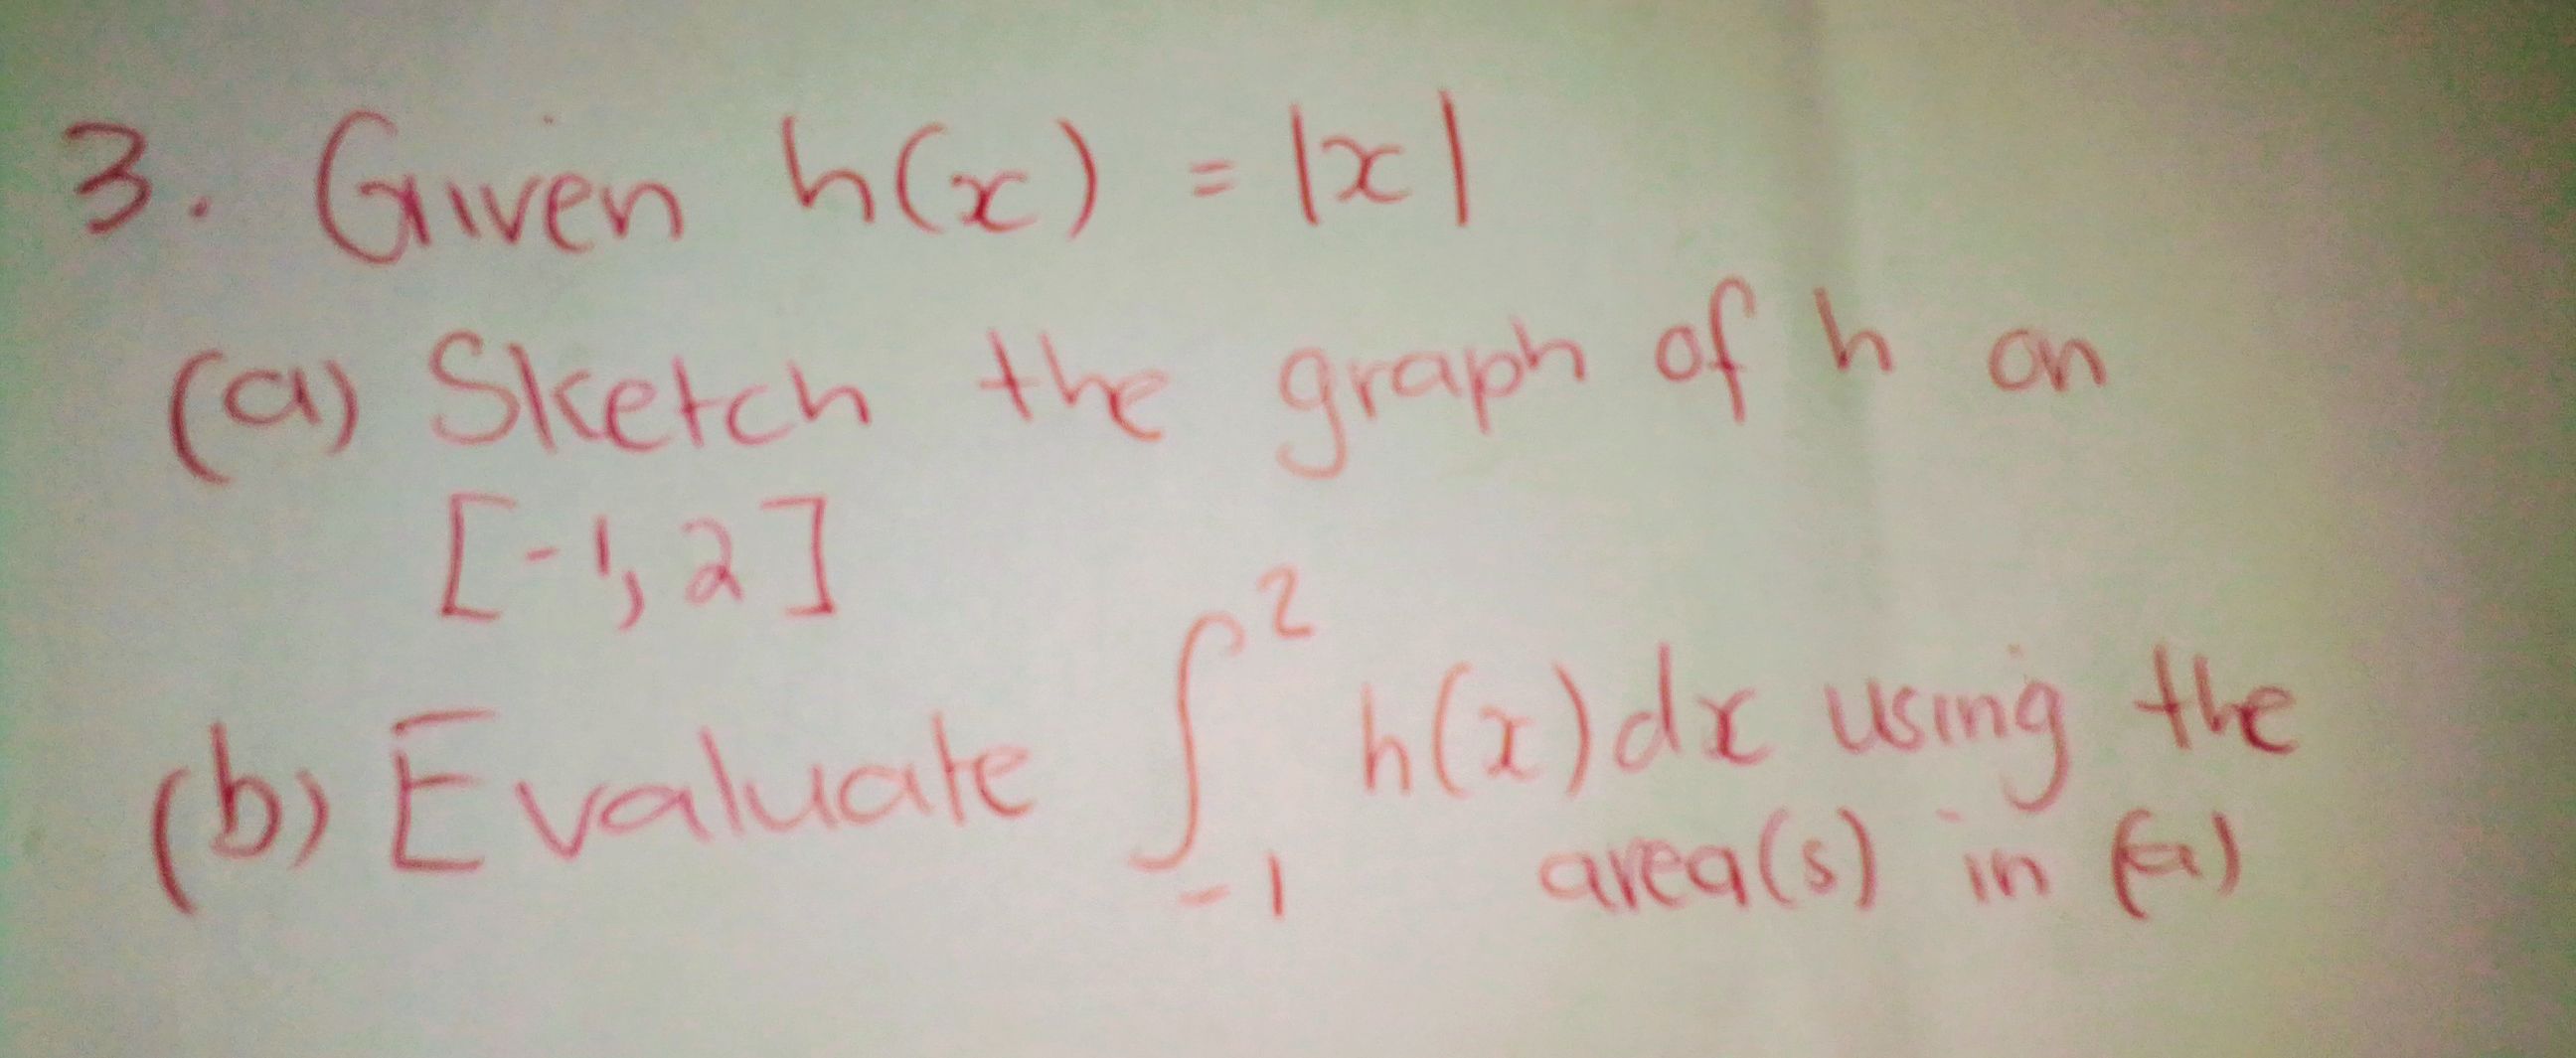 3. Given h(x) = |x|
(a) Sketch the graph of h on
[-1, 2]
(b) Evaluate ∫₋₁² h(x)dx using the
area(s) in (a)